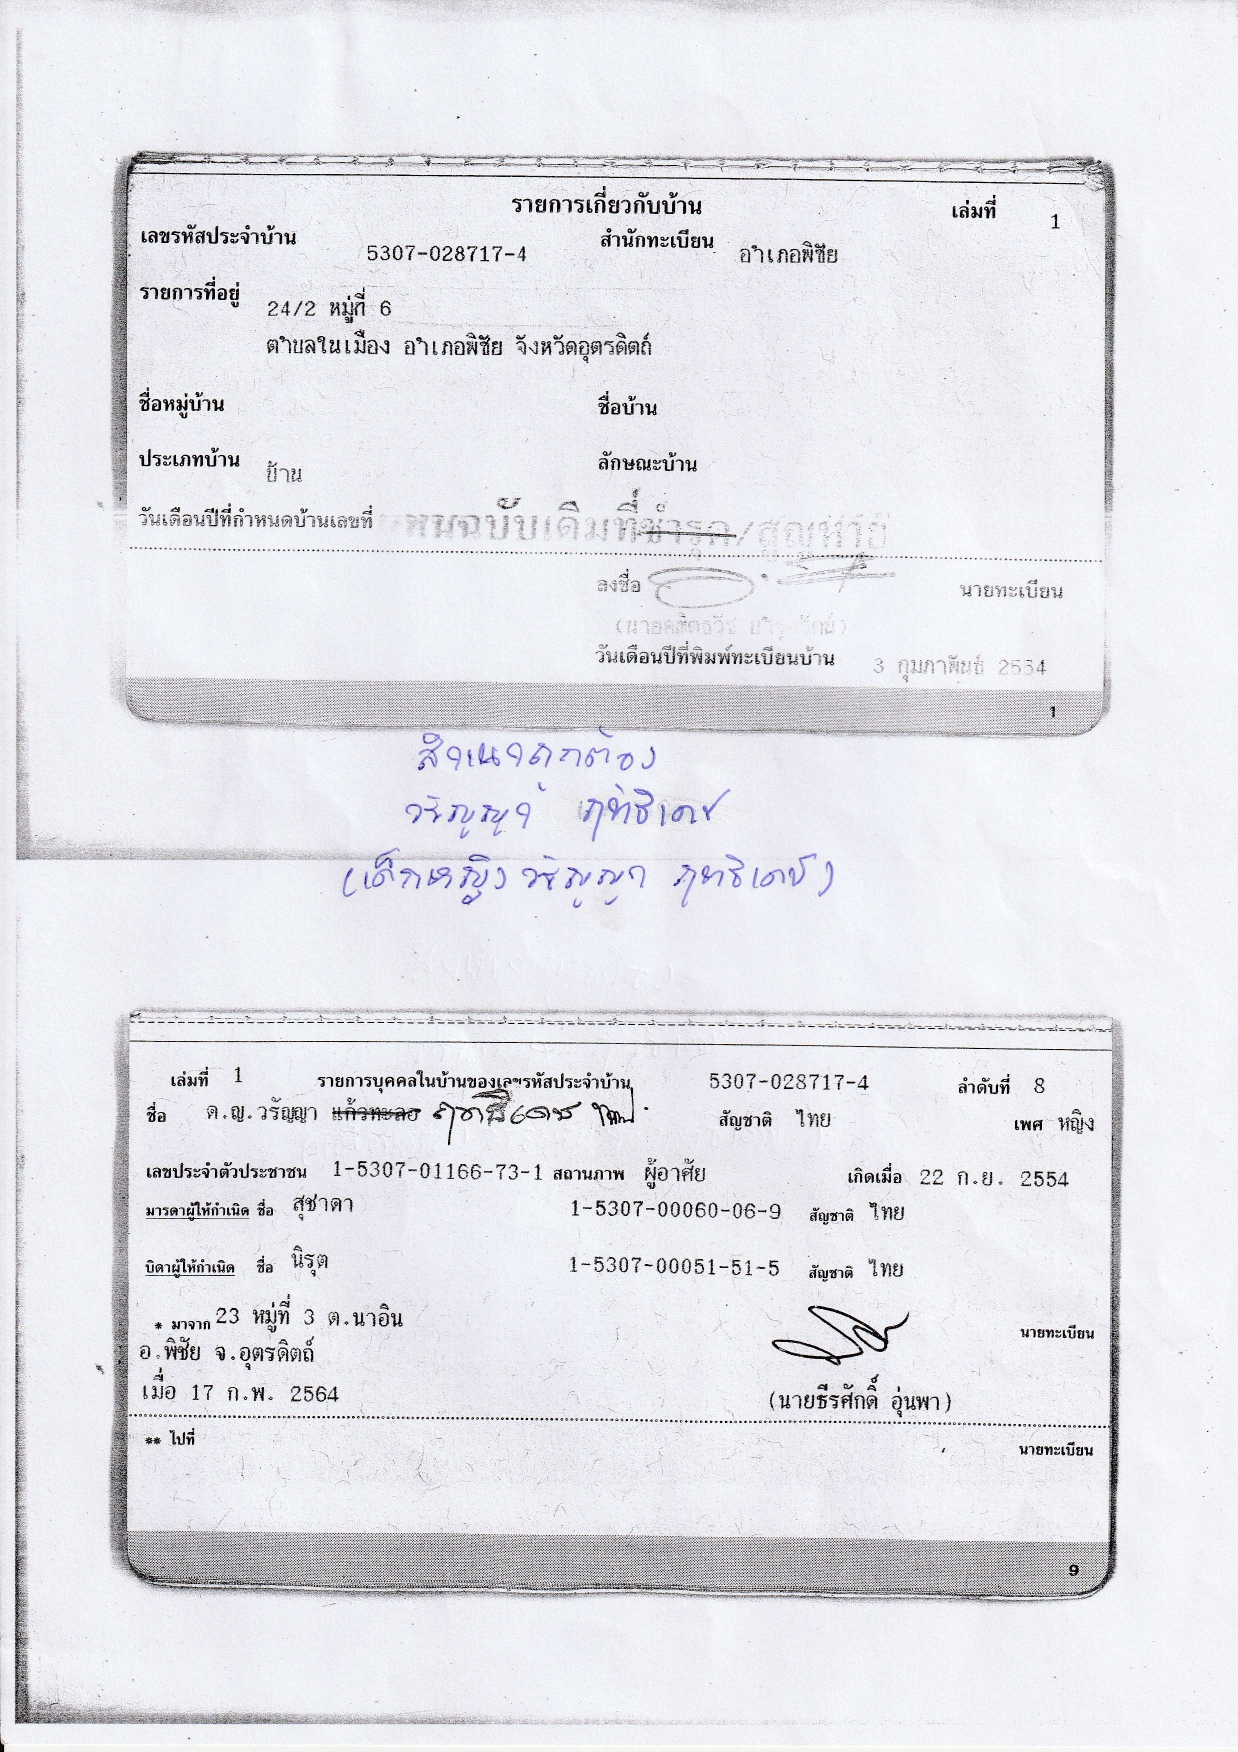 รายการเกี่ยวกับบ้าน เล่มที่ 1
เลขรหัสประจำบ้าน 5307-028717-4 สำนักทะเบียน อำเภอพิชัย
รายการที่อยู่ 24/2 หมู่ที่ 6
ตำบลในเมือง อำเภอพิชัย จังหวัดอุตรดิตถ์
ชื่อหมู่บ้าน ชื่อบ้าน
ประเภทบ้าน บ้าน ลักษณะบ้าน
วันเดือนปีที่กำหนดบ้านเลขที่
ฉบับเดิมที่ชำรุด/สูญหาย
ลงชื่อ นายทะเบียน
วันเดือนปีที่พิมพ์ทะเบียนบ้าน 3 กุมภาพันธ์ 2554
1
สำเนาถูกต้อง
วรัญญา ฤทธิเดช
(เด็กหญิง วรัญญา ฤทธิเดช)
เล่มที่ 1 รายการบุคคลในบ้านของเลขรหัสประจำบ้าน 5307-028717-4 ลำดับที่ 8
ชื่อ ด.ญ.วรัญญา แก้วทะลอ ฤทธิเดช สัญชาติ ไทย เพศ หญิง
เลขประจำตัวประชาชน 1-5307-01166-73-1 สถานภาพ ผู้อาศัย เกิดเมื่อ 22 ก.ย. 2554
มารดาผู้ให้กำเนิด ชื่อ สุชาดา 1-5307-00060-06-9 สัญชาติ ไทย
บิดาผู้ให้กำเนิด ชื่อ นิรุต 1-5307-00051-51-5 สัญชาติ ไทย
* มาจาก 23 หมู่ที่ 3 ต.นาอิน
นายทะเบียน
อ.พิชัย จ.อุตรดิตถ์
เมื่อ 17 ก.พ. 2564 (นายธีรศักดิ์ อุ่นพา)
** ไปที่ นายทะเบียน
9